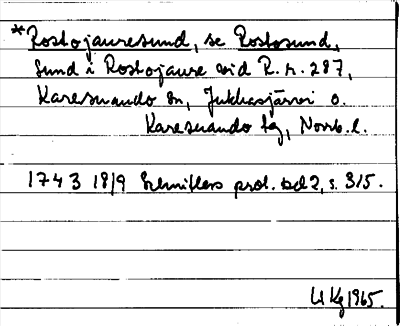 *Rostojauresund, se Rostosund,
Sund i Rostojaure vid R. r. 287,
Karesuando sn, Jukkasjärvi o.
Karesuando lg, Norrb. l.
1743 18/9 Schnitlers prot. bd 2, s. 315.
U Kg 1965.